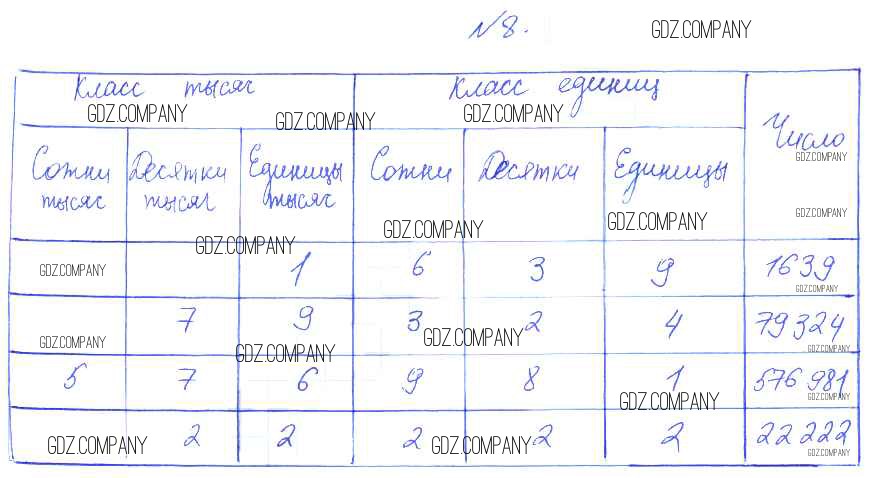 №8.
GDZ.COMPANY
Класс тысяч Класс единиц
GDZ.COMPANY GDZ.COMPANY GDZ.COMPANY
Число
GDZ.COMPANY
Сотни тысяч Десятки тысяч Единицы тысяч Сотни Десятки Единицы
GDZ.COMPANY
GDZ.COMPANY GDZ.COMPANY GDZ.COMPANY
GDZ.COMPANY 1 6 3 9 1639
GDZ.COMPANY
7 9 3 2 4 79324
GDZ.COMPANY GDZ.COMPANY GDZ.COMPANY GDZ.COMPANY
5 7 6 9 8 1 576 981
GDZ.COMPANY GDZ.COMPANY
2 2 2 2 2 22 222
GDZ.COMPANY GDZ.COMPANY GDZ.COMPANY